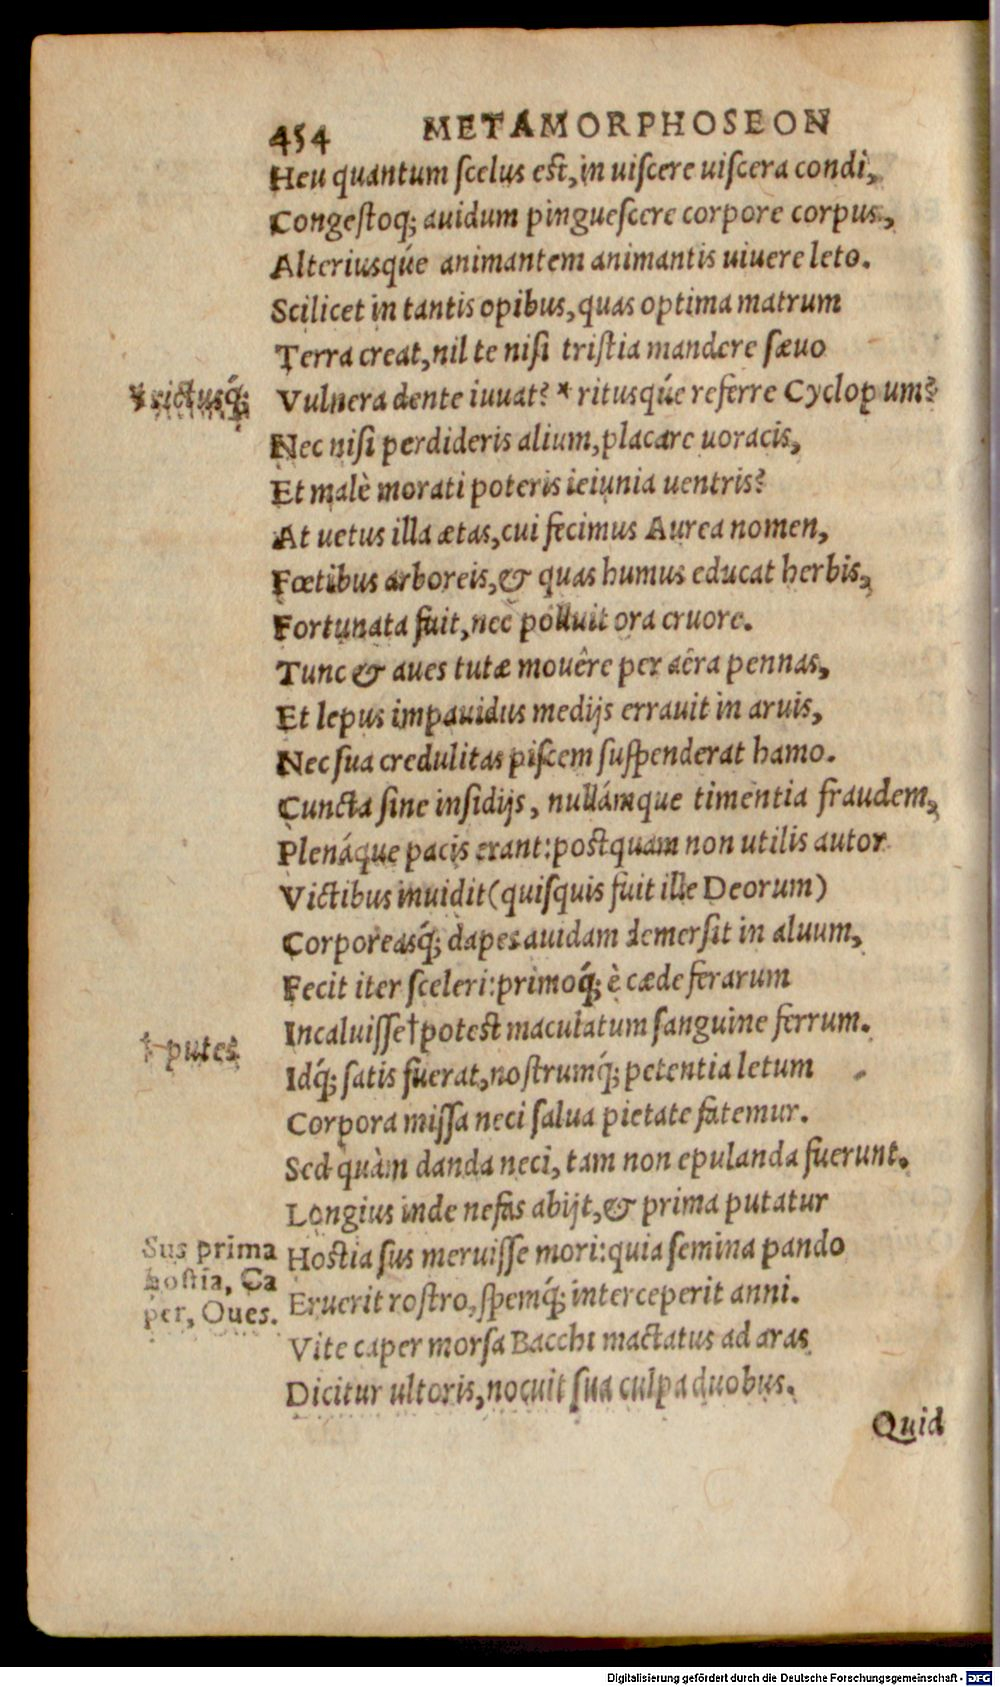 454 METAMORPHOSEON
Heu quantum ſcelus eſt, in uiſcere uiſcera condi,
Congeſtoq; auidum pingueſcere corpore corpus,
Alteriusqúe animantem animantis uiuere leto.
Scilicet in tantis opibus, quas optima matrum
Terra creat, nil te niſi triſtia mandere ſævo
* rictusq́;
Vulnera dente iuuat? * ritusqúe referre Cyclopum?
Nec niſi perdideris alium, placare uoracis,
Et malè morati poteris ieiunia uentris?
At uetus illa ætas, cui fecimus Aurea nomen,
Fœtibus arboreis, & quas humus educat herbis,
Fortunata fuit, nec polluit ora cruore.
Tunc & aues tutæ mouêre per aëra pennas,
Et lepus impauidus medijs errauit in aruis,
Nec ſua credulitas piſcem ſuſpenderat hamo.
Cuncta ſine inſidijs, nullámque timentia fraudem,
Plenáque pacis erant: poſtquam non utilis autor
Victibus inuidit (quiſquis fuit ille Deorum)
Corporeasq́; dapes auidam demerſit in aluum,
Fecit iter ſceleri: primoq́; è cæde ferarum
Incaluiſſe † poteſt maculatum ſanguine ferrum.
† putes
Idq́; ſatis fuerat, noſtrumq́; petentia letum
Corpora miſſa neci ſalua pietate fatemur.
Sed quàm danda neci, tam non epulanda fuerunt.
Longius inde nefas abijt, & prima putatur
Sus prima
hoſtia, Ca
per, Oues.
Hoſtia ſus meruiſſe mori: quia ſemina pando
Eruerit roſtro, ſpemq́; interceperit anni.
Vite caper morſa Bacchi mactatus ad aras
Dicitur ultoris, nocuit ſua culpa duobus.
Quid
Digitalisierung gefördert durch die Deutsche Forschungsgemeinschaft - DFG